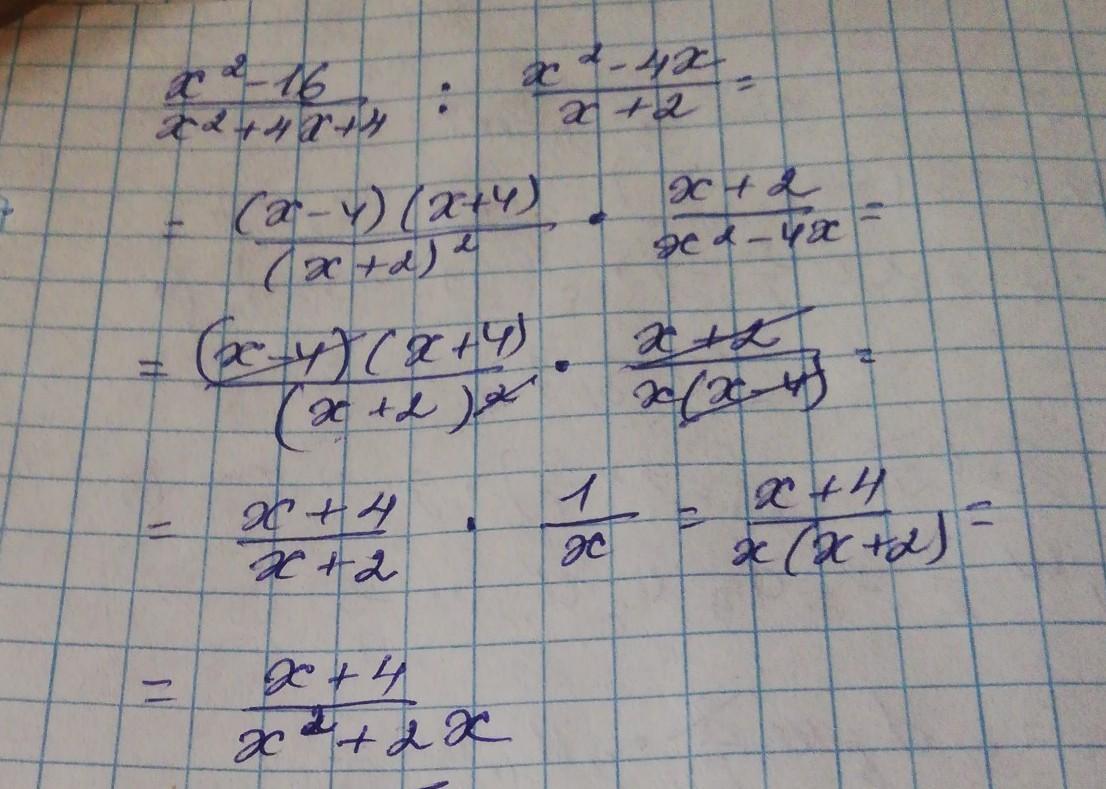 (x² - 16)/(x² + 4x + 4) : (x² - 4x)/(x + 2) =
= ((x - 4)(x + 4))/((x + 2)²) · (x + 2)/(x² - 4x) =
= ((x - 4)(x + 4))/((x + 2)²) · (x + 2)/(x(x - 4)) =
= (x + 4)/(x + 2) · 1/x = (x + 4)/(x(x + 2)) =
= (x + 4)/(x² + 2x)